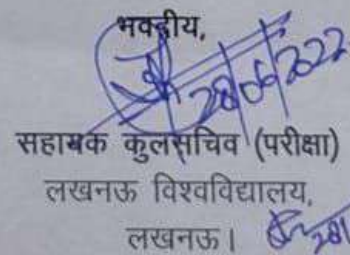 भवदीय,
28/06/2022
सहायक कुलसचिव (परीक्षा)
लखनऊ विश्वविद्यालय,
लखनऊ।